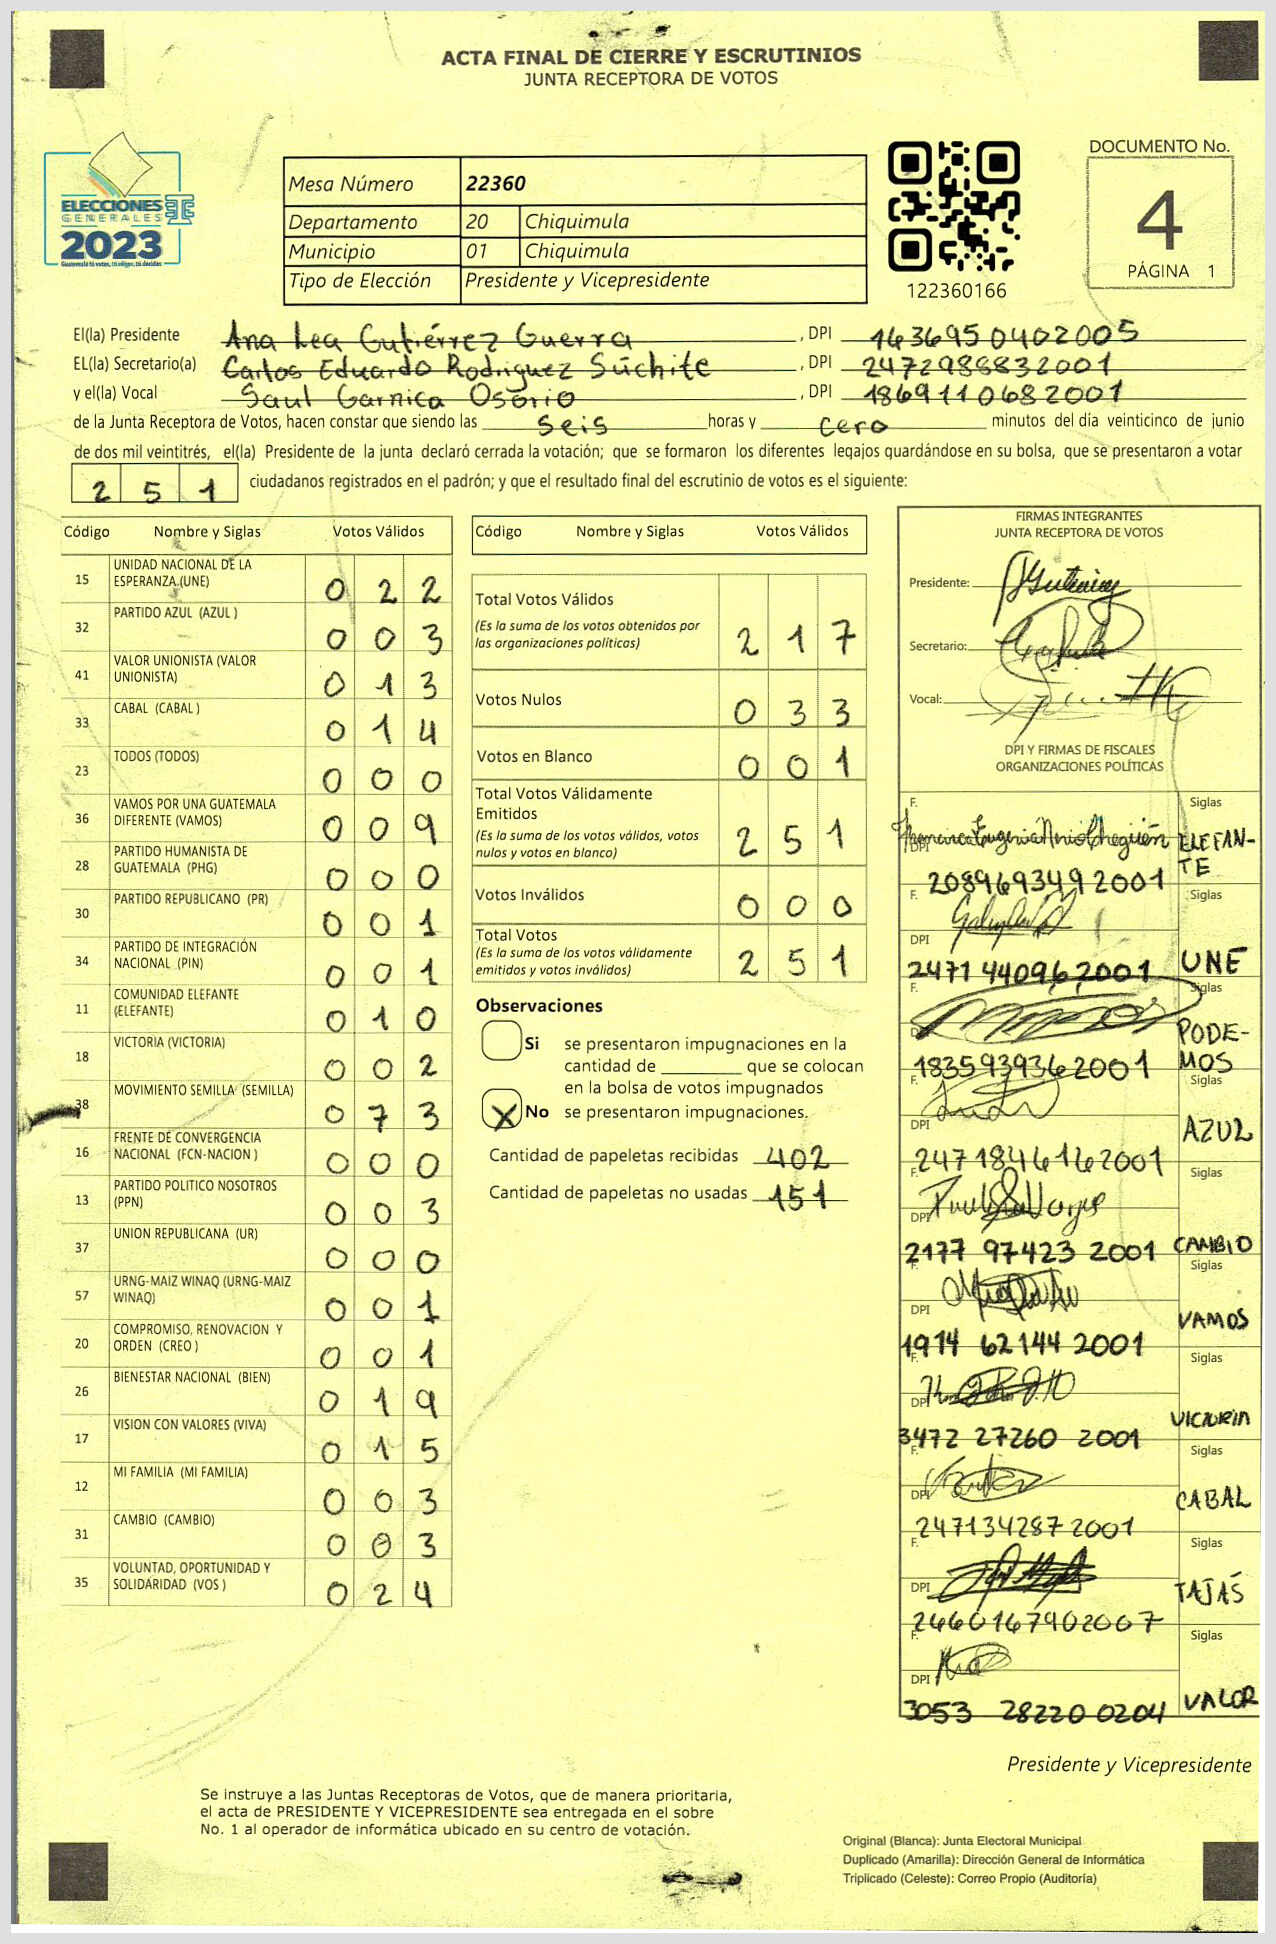 ACTA FINAL DE CIERRE Y ESCRUTINIOS
JUNTA RECEPTORA DE VOTOS
ELECCIONES
GENERALES
2023
Guatemala tú votas, tú eliges, tú decides
Mesa Número 22360
Departamento 20 Chiquimula
Municipio 01 Chiquimula
Tipo de Elección Presidente y Vicepresidente
122360166
DOCUMENTO No.
4
PÁGINA 1
El(la) Presidente Ana Lea Gutiérrez Guerra , DPI 1436950402005
EL(la) Secretario(a) Carlos Eduardo Rodriguez Súchite , DPI 2472988832001
y el(la) Vocal Saul Garnica Osorio , DPI 1869110682001
de la Junta Receptora de Votos, hacen constar que siendo las Seis horas y Cero minutos del día veinticinco de junio
de dos mil veintitrés, el(la) Presidente de la junta declaró cerrada la votación; que se formaron los diferentes legajos guardándose en su bolsa, que se presentaron a votar
2 5 1 ciudadanos registrados en el padrón; y que el resultado final del escrutinio de votos es el siguiente:
Código Nombre y Siglas Votos Válidos
15 UNIDAD NACIONAL DE LA
ESPERANZA (UNE) 0 2 2
32 PARTIDO AZUL (AZUL ) 0 0 3
41 VALOR UNIONISTA (VALOR
UNIONISTA) 0 1 3
33 CABAL (CABAL ) 0 1 4
23 TODOS (TODOS) 0 0 0
36 VAMOS POR UNA GUATEMALA
DIFERENTE (VAMOS) 0 0 9
28 PARTIDO HUMANISTA DE
GUATEMALA (PHG) 0 0 0
30 PARTIDO REPUBLICANO (PR) 0 0 1
34 PARTIDO DE INTEGRACIÓN
NACIONAL (PIN) 0 0 1
11 COMUNIDAD ELEFANTE
(ELEFANTE) 0 1 0
18 VICTORIA (VICTORIA) 0 0 2
38 MOVIMIENTO SEMILLA (SEMILLA) 0 7 3
16 FRENTE DE CONVERGENCIA
NACIONAL (FCN-NACION ) 0 0 0
13 PARTIDO POLITICO NOSOTROS
(PPN) 0 0 3
37 UNION REPUBLICANA (UR) 0 0 0
57 URNG-MAIZ WINAQ (URNG-MAIZ
WINAQ) 0 0 1
20 COMPROMISO, RENOVACION Y
ORDEN (CREO ) 0 0 1
26 BIENESTAR NACIONAL (BIEN) 0 1 9
17 VISION CON VALORES (VIVA) 0 1 5
12 MI FAMILIA (MI FAMILIA) 0 0 3
31 CAMBIO (CAMBIO) 0 0 3
35 VOLUNTAD, OPORTUNIDAD Y
SOLIDARIDAD (VOS ) 0 2 4
Código Nombre y Siglas Votos Válidos
Total Votos Válidos
(Es la suma de los votos obtenidos por
las organizaciones políticas) 2 1 7
Votos Nulos 0 3 3
Votos en Blanco 0 0 1
Total Votos Válidamente
Emitidos
(Es la suma de los votos válidos, votos
nulos y votos en blanco) 2 5 1
Votos Inválidos 0 0 0
Total Votos
(Es la suma de los votos válidamente
emitidos y votos inválidos) 2 5 1
Observaciones
Si se presentaron impugnaciones en la
cantidad de ________ que se colocan
en la bolsa de votos impugnados
X No se presentaron impugnaciones.
Cantidad de papeletas recibidas 402
Cantidad de papeletas no usadas 151
FIRMAS INTEGRANTES
JUNTA RECEPTORA DE VOTOS
Presidente:
Secretario:
Vocal:
DPI Y FIRMAS DE FISCALES
ORGANIZACIONES POLÍTICAS
F. Siglas
DPI ELEFAN-
TE
2089693492001
F. Siglas
DPI
2471440962001 UNE
F. Siglas
PODE-
MOS
1835939362001
F. Siglas
DPI AZUL
2471846162001
Siglas
DPI
2177 97423 2001 CAMBIO
F. Siglas
DPI VAMOS
1914 62144 2001
F. Siglas
DPI VICTORIA
3472 27260 2001
Siglas
DPI CABAL
2471342872001
F. Siglas
DPI TAJÁS
2660167902007
F. Siglas
DPI
3053 28220 0204 VALOR
Presidente y Vicepresidente
Se instruye a las Juntas Receptoras de Votos, que de manera prioritaria,
el acta de PRESIDENTE Y VICEPRESIDENTE sea entregada en el sobre
No. 1 al operador de informática ubicado en su centro de votación.
Original (Blanca): Junta Electoral Municipal
Duplicado (Amarilla): Dirección General de Informática
Triplicado (Celeste): Correo Propio (Auditoría)